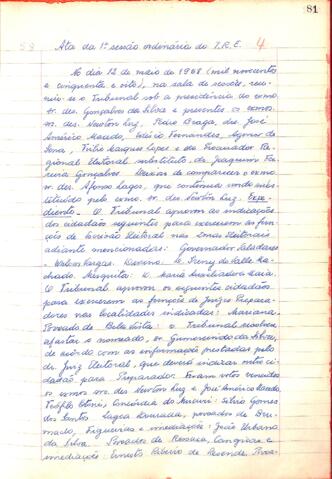 81
Ata da 1ª sessão ordinária do T.R.E. 4
No dia 12 de maio de 1958 (mil novecentos
e cinquenta e oito), na sala de sessões, reu-
niu-se o Tribunal sob a presidência do exmo.
sr. des. Gonçalves da Silva e presentes os exmos.
srs. des. Newton Luz, Pedro Braga, drs. José
Américo Macedo, Fernandes, Agenor de
Sena, Túlio Marques Lopes e do Procurador Re-
gional Eleitoral substituto, dr. Joaquim Fer-
reira Gonçalves. Deixou de comparecer o exmo.
sr. des. Afonso Lages, que continua sendo subs-
tituído pelo exmo. sr. des. Newton Luz. Expe-
diente. O Tribunal aprovou as indicações
dos cidadãos seguintes para exercerem as fun-
ções de Escrivão Eleitoral nas Zonas Eleitorais
adiante mencionadas: Governador Valadares
- Vargas. - do Valle Ma-
chado. Mesquita: D. Maria Auxiliadora Maia.
O Tribunal aprovou os seguintes cidadãos
para exercerem as funções de Juízes Prepara-
dores nas localidades indicadas: Mariana
Povoado de Bela Vista: o Tribunal resolveu
afastar o nomeado, sr. da Silva,
de acôrdo com as informações prestadas pelo
dr. Juiz Eleitoral, que deverá indicar outro ci-
dadão para Preparador. Foram votos vencidos
os exmos. srs. des. Newton Luz e José Américo Macedo.
Teófilo Otoni, do Mucuri: Silvio Gomes
dos Santos. Lagoa Dourada, povoados de Dru-
mond, Figueiras e imediações: João Urbano
da Silva. Povoados de Ressaca, e
imediações: Ernesto Ribeiro de Resende. Povoa-